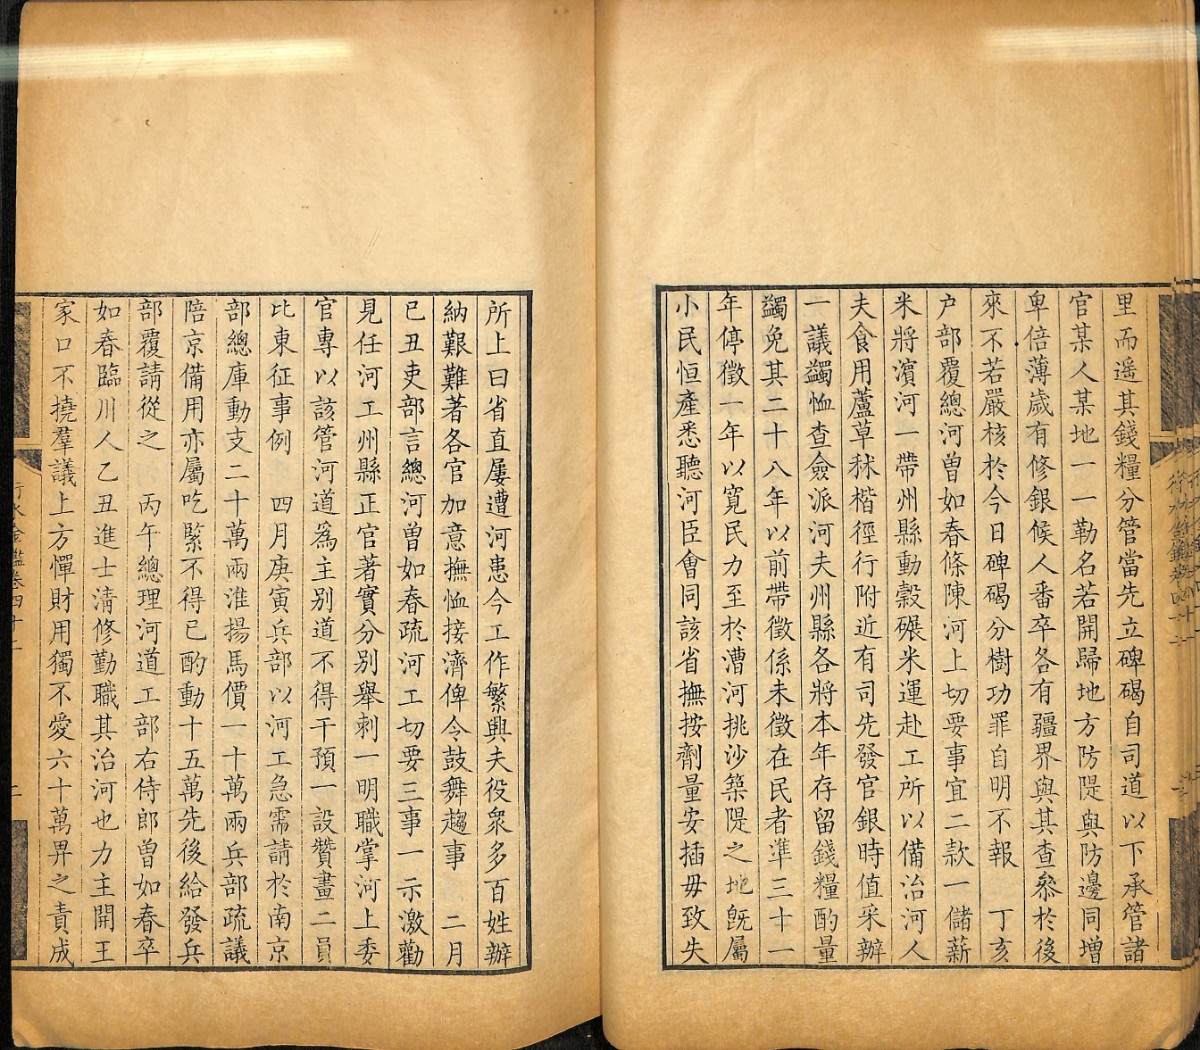 里而遥其錢糧分管當先立碑碣自司道以下承管諸
官某人某地一一勒名若開歸地方防隄與防邊同增
卑倍薄歲有修銀候人番卒各有疆界與其查叅於後
來不若嚴核於今日碑碣分樹功罪自明不報　丁亥
户部覆總河曾如春條陳河上切要事宜二款一儲薪
米將濵河一帶州縣動穀碾米運赴工所以備治河人
夫食用蘆草秫楷徑行附近有司先發官銀時值采辦
一議蠲恤查僉派河夫州縣各將本年存留錢糧酌量
蠲免其二十八年以前帶徵係未徵在民者準三十一
年停徵一年以寛民力至於漕河挑沙築隄之地旣屬
小民恒產悉聽河臣會同該省撫按劑量安插毋致失
所上曰省直屢遭河患今工作繁興夫役衆多百姓辦
納艱難著各官加意撫恤接濟俾令鼓舞趨事　二月
巳丑吏部言總河曾如春疏河工切要三事一示激勸
見任河工州縣正官著實分别舉刺一明職掌河上委
官專以該管河道爲主别道不得干預一設贊畫二員
比東征事例　四月庚寅兵部以河工急需請於南京
部總庫動支二十萬兩淮揚馬價一十萬兩兵部疏議
陪京備用亦屬吃緊不得已酌動十五萬先後給發兵
部覆請從之　丙午總理河道工部右侍郎曾如春卒
如春臨川人乙丑進士淸修勤職其治河也力主開王
家口不撓羣議上方憚財用獨不愛六十萬畀之責成
行水金鑑卷四十二